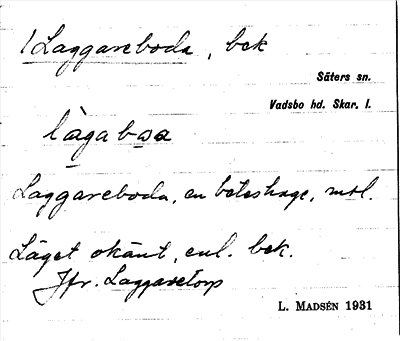 1 Laggareboda, bek
Säters sn.
Vadsbo hd. Skar. l.
Laggareboda, en beteshage, mtl.
Läget okänt, enl. bek.
Jfr. Laggaretorp
L. MADSÉN 1931